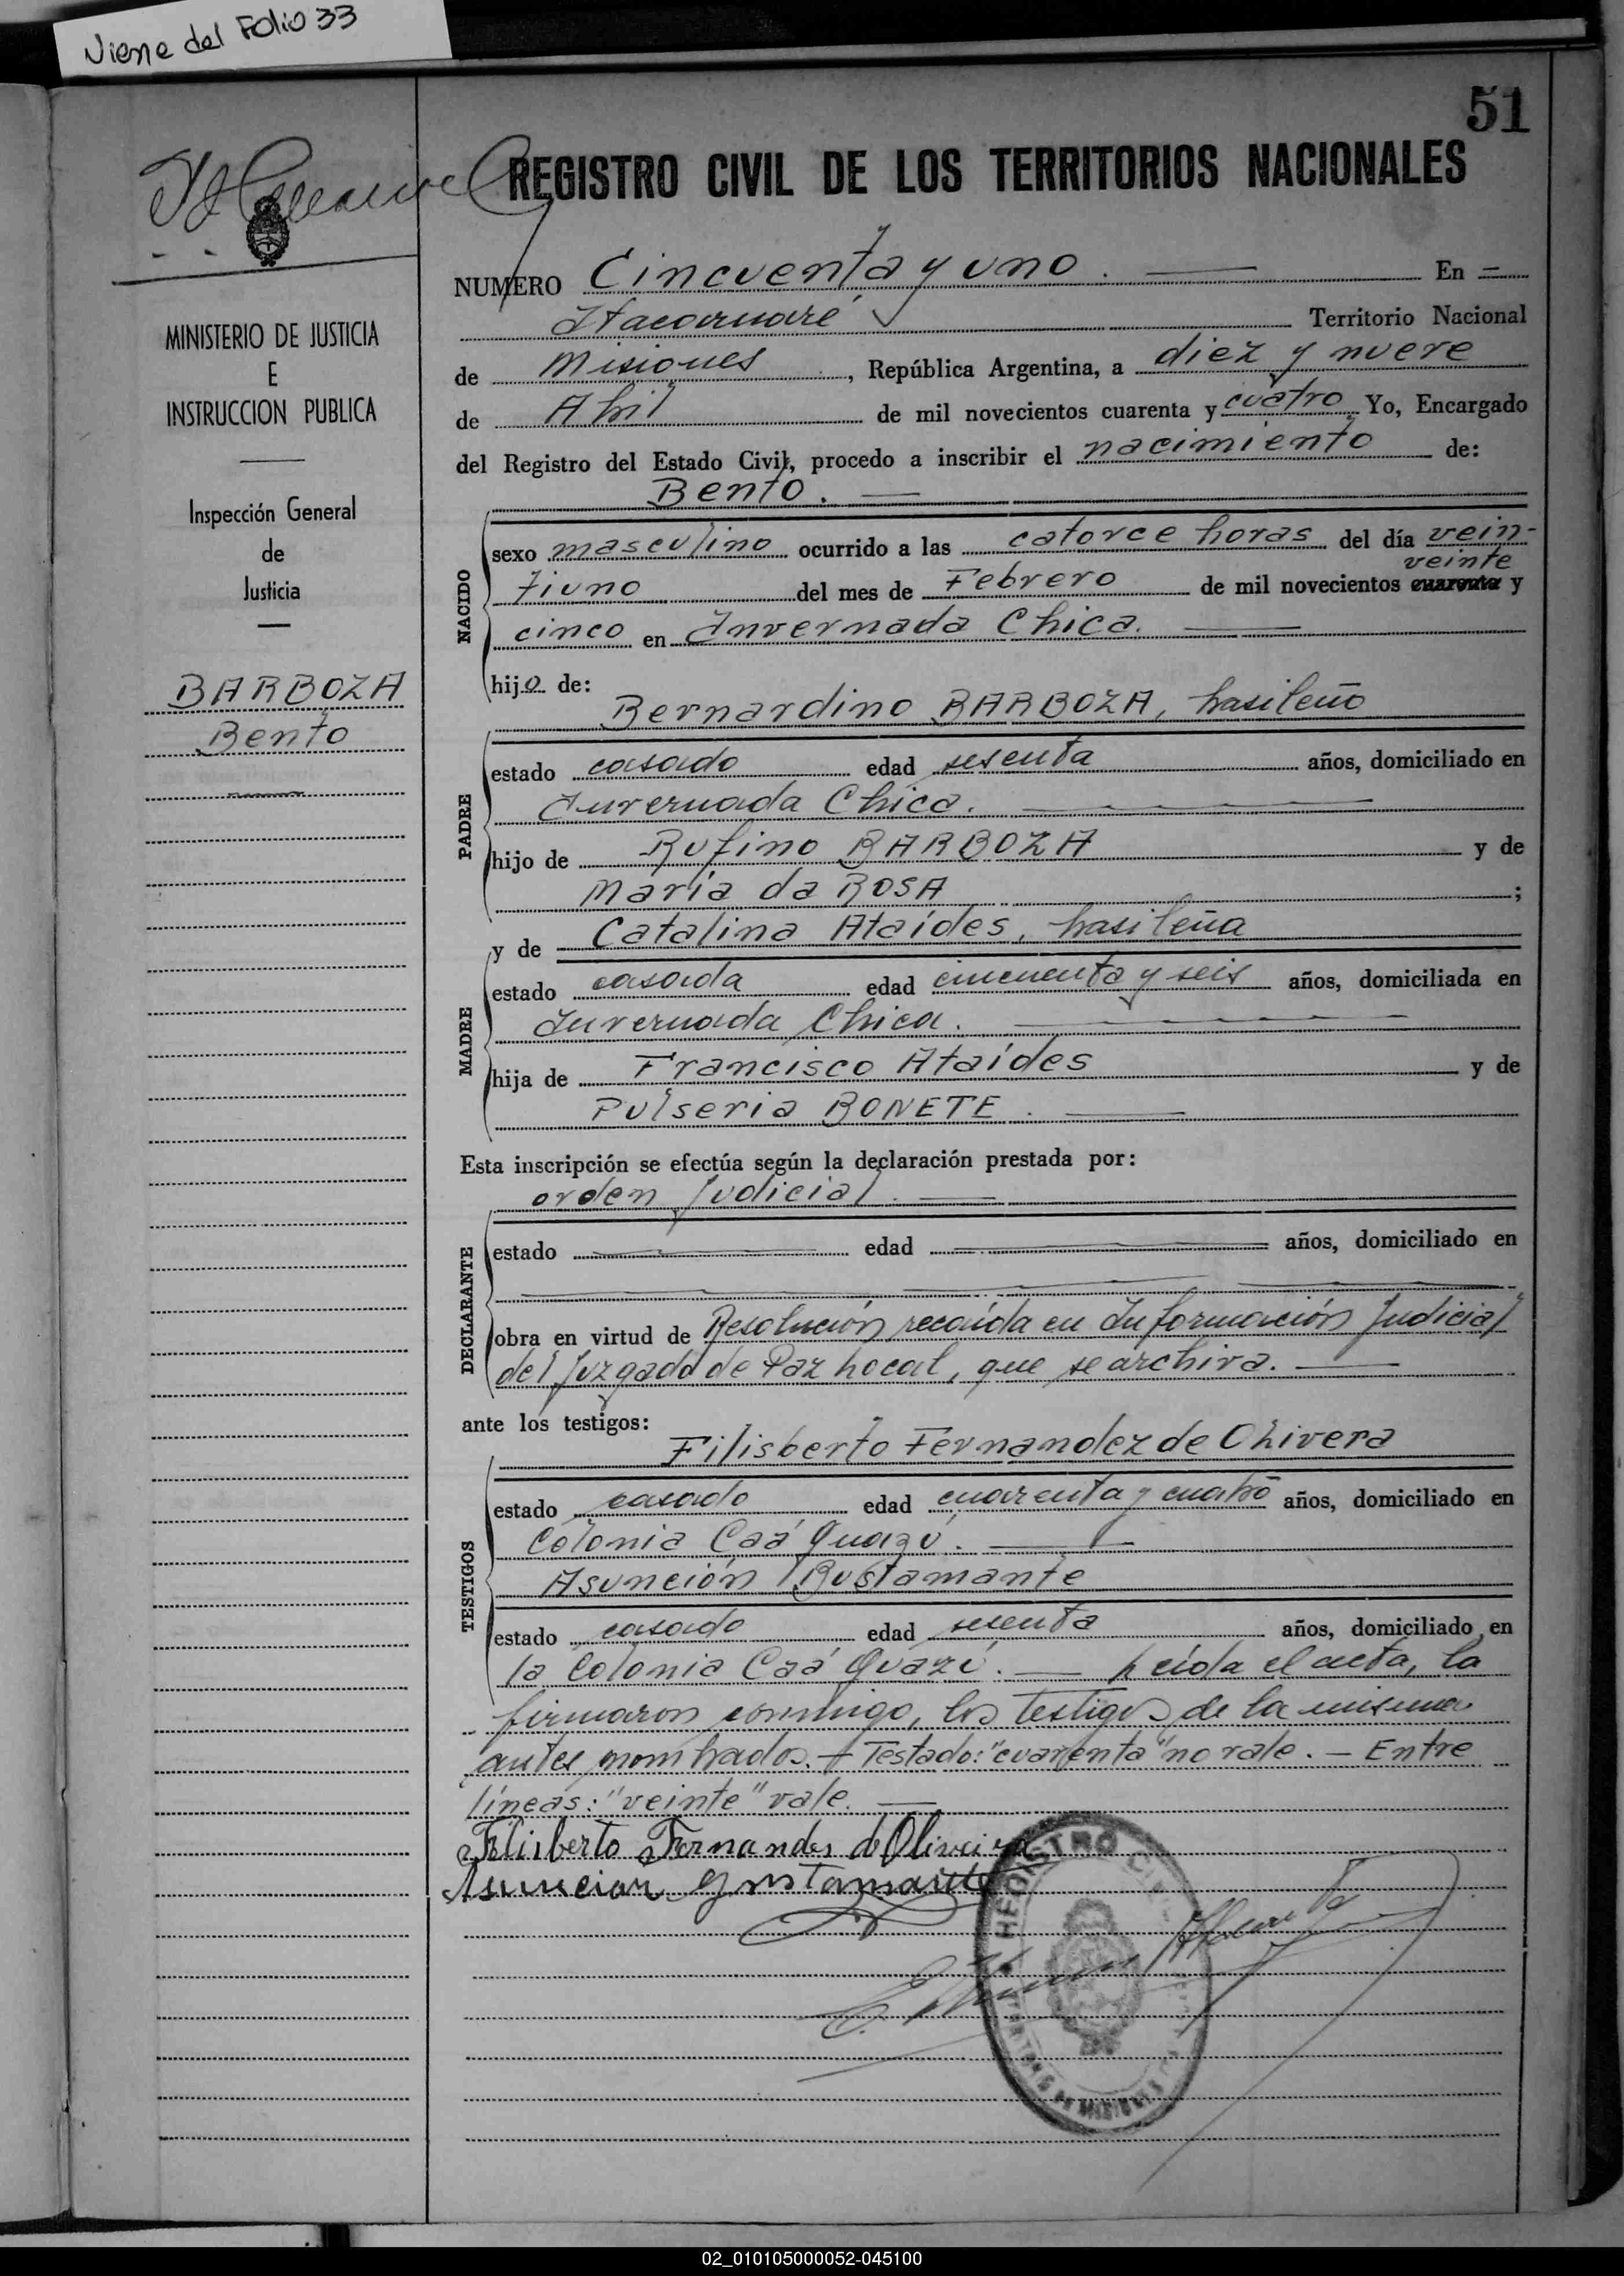 Viene del Folio 33
51
REGISTRO CIVIL DE LOS TERRITORIOS NACIONALES
MINISTERIO DE JUSTICIA
E
INSTRUCCION PUBLICA
Inspección General
de
Justicia
BARBOZA
Bento
NUMERO Cincuenta y uno. — En =
Itacaruaré Territorio Nacional
de Misiones, República Argentina, a diez y nueve
de Abril de mil novecientos cuarenta y cuatro Yo, Encargado
del Registro del Estado Civil, procedo a inscribir el nacimiento de:
Bento. —
NACIDO
sexo masculino ocurrido a las catorce horas del día vein-
veinte
tiuno del mes de Febrero de mil novecientos cuarenta y
cinco en Invernada Chica. —
hijo de:
Bernardino BARBOZA, brasileño
PADRE
estado casado edad sesenta años, domiciliado en
Invernada Chica. —
hijo de Rufino BARBOZA y de
María da ROSA ;
y de Catalina Ataídes, brasileña
MADRE
estado casada edad cincuenta y seis años, domiciliada en
Invernada Chica. —
hija de Francisco Ataídes y de
Pulseria BONETE. —
Esta inscripción se efectúa según la declaración prestada por:
orden judicial. —
DECLARANTE
estado — edad — años, domiciliado en
obra en virtud de Resolución recaída en Información Judicial
del Juzgado de Paz Local, que se archiva. —
ante los testigos:
Filisberto Fernandez de Olivera
TESTIGOS
estado casado edad cuarenta y cuatro años, domiciliado en
Colonia Caá Guazú. —
Asunción Bustamante
estado casado edad sesenta años, domiciliado en
la Colonia Caá Guazú. — Leída el acta, la
firmaron conmigo, los testigos de la misma
antes nombrados. — Testado: "cuarenta" no vale. — Entre
líneas: "veinte" vale. —
Filisberto Fernandes de Oliveira
Asuncion Bustamante
REGISTRO CIVIL
02_010105000052-045100